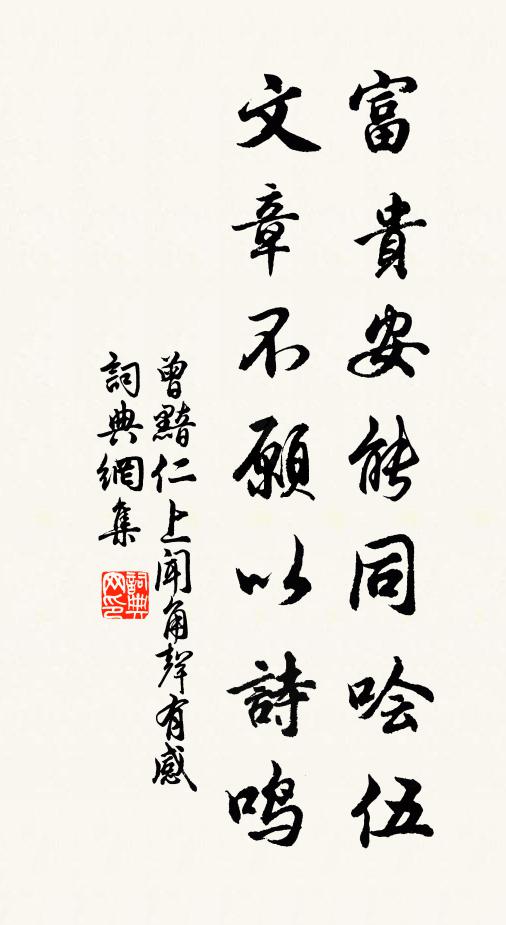 富貴安能同哙伍
文章不願以詩鳴
曾黯仁上聞角聲有感
詞典網集
詞典网印